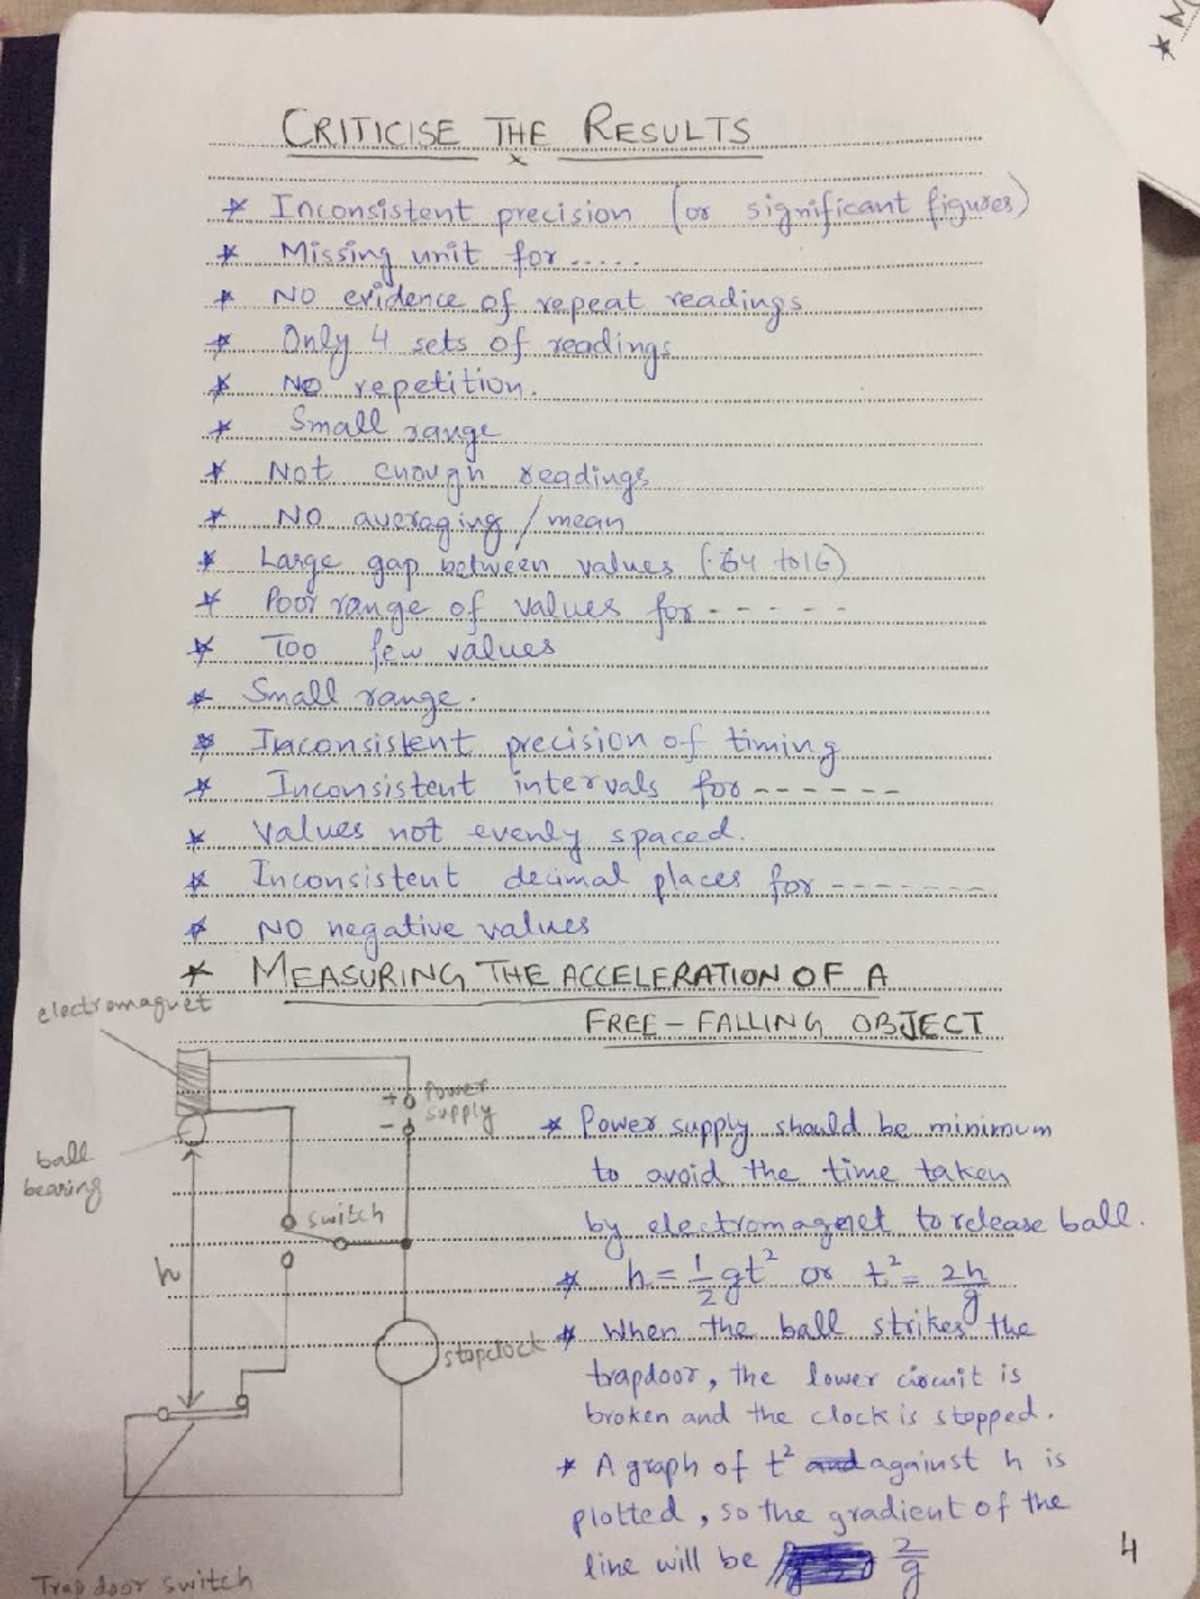 CRITICISE THE RESULTS
* Inconsistent precision (or significant figures)
* Missing unit for .....
* NO evidence of repeat readings
* Only 4 sets of readings
* NO repetition.
* Small range
* Not enough readings
* NO averaging / mean
* Large gap between values (.64 to 16)
* Poor range of values for - - - - -
* Too few values
* Small range.
* Inconsistent precision of timing
* Inconsistent intervals for ------
* Values not evenly spaced.
* Inconsistent decimal places for -------
* NO negative values
* MEASURING THE ACCELERATION OF A
FREE-FALLING OBJECT
electromagnet
+ Power
supply
-
ball
bearing
switch
h
stopclock
Trap door switch
* Power supply should be minimum
to avoid the time taken
by electromagnet to release ball.
* h = 1/2 gt² or t² = 2h/g
* When the ball strikes the
trapdoor, the lower circuit is
broken and the clock is stopped.
* A graph of t² and against h is
plotted, so the gradient of the
line will be 2/g
4
* M